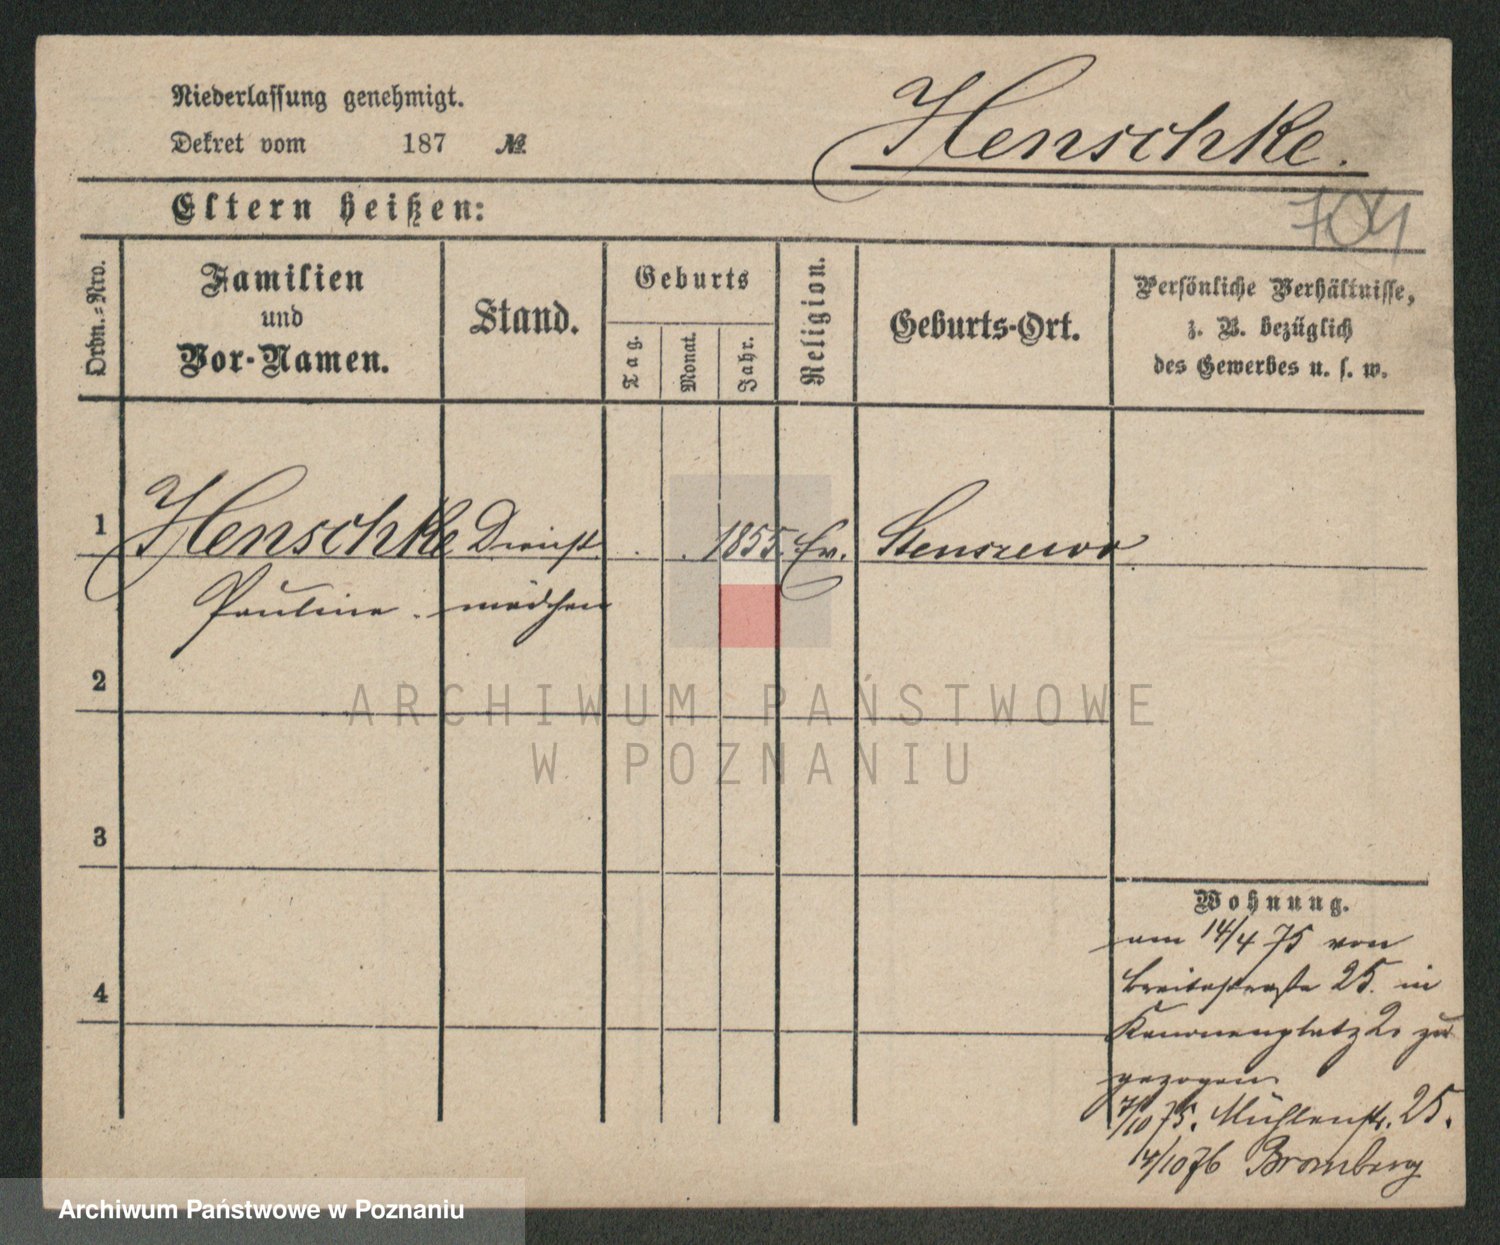 Niederlassung genehmigt.
Dekret vom 187 №
Henschke.
704
Eltern heißen:
Ordn.-Nro.
Familien
und
Vor-Namen.
Stand.
Geburts
Tag.
Monat.
Jahr.
Religion.
Geburts-Ort.
Persönliche Verhältnisse,
z. B. bezüglich
des Gewerbes u. s. w.
1 Henschke Dienst . . 1855. Ev. Stenszewo
Pauline. mädchen
2
ARCHIWUM PAŃSTWOWE
W POZNANIU
3
Wohnung.
am 14/4 75 von
Breitestraße 25. in
4
Kanonenplatz 2. zu
gezogen
7/10 75. Mühlenstr. 25.
14/10 76 Bromberg
Archiwum Państwowe w Poznaniu